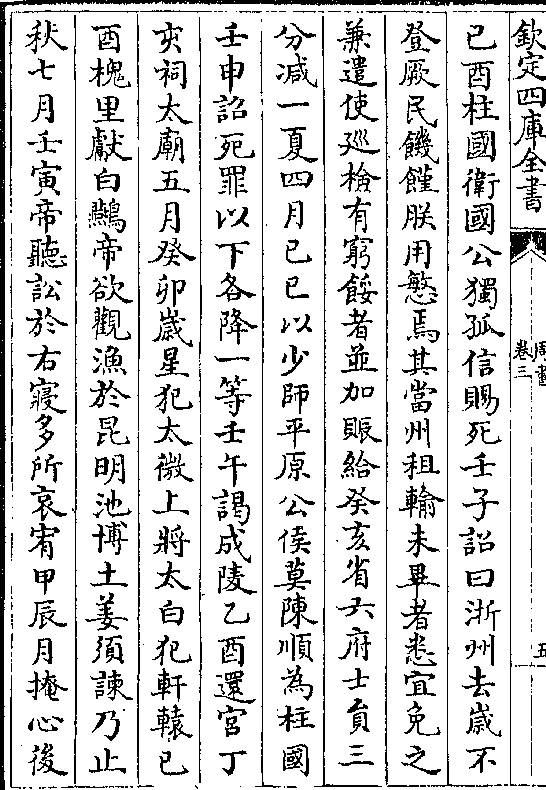 欽定四庫全書
周書
卷三
五
己酉柱國衛國公獨孤信賜死壬子詔曰浙州去歲不
登厥民饑饉朕用慜焉其當州租輸未畢者悉宜免之
兼遣使巡檢有窮餒者並加賑給癸亥省六府士員三
分減一夏四月己巳以少師平原公侯莫陳順為柱國
壬申詔死罪以下各降一等壬午謁成陵乙酉還宮丁
亥祠太廟五月癸卯歲星犯太微上將太白犯軒轅已
酉槐里獻白鷰帝欲觀漁於昆明池博士姜須諫乃止
秋七月壬寅帝聽訟於右寢多所哀宥甲辰月掩心後